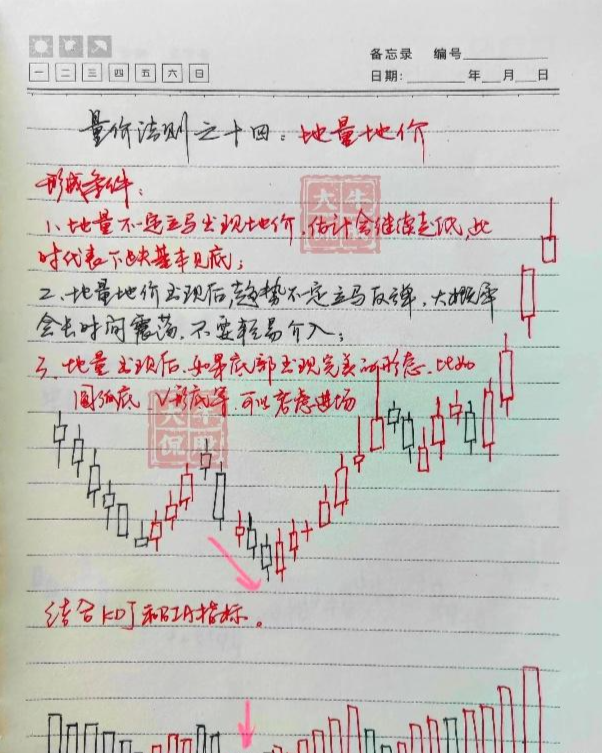 备忘录 编号
一 二 三 四 五 六 日
日期: 年 月 日
量价法则之十四:地量地价
形成条件:
1、地量不一定立马出现地价,估计会继续走低,此
时代表下跌基本见底;
2、地量地价出现后,趋势不一定立马反弹,大概率
会长时间震荡,不要轻易介入;
3、地量出现后,如果底部出现完美的形态,比如
圆弧底、V形底等,可以考虑进场
结合KDJ和BIAS指标。
大牛
侃股
大牛
侃股